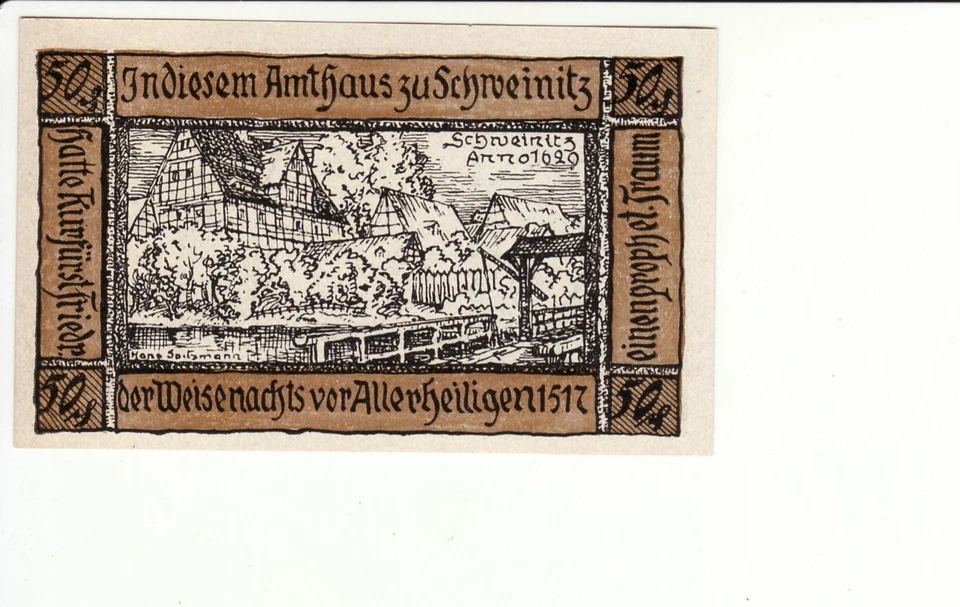 50 ₰
In diesem Amthaus zu Schweinitz
50 ₰
hatte Kurfürst Friedr.
der Weise nachts vor Allerheiligen 1517
einen prophet. Traum
Schweinitz
Anno 1629
Hans Saltzmann
50 ₰
50 ₰